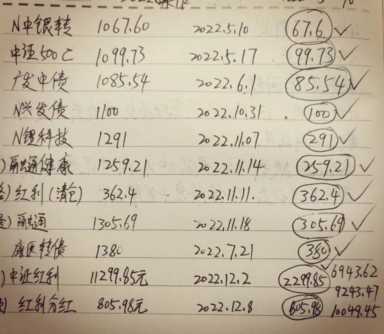 N中银转 1067.60 2022.5.10 67.6 ✓
中证500C 1099.73 2022.5.17. 99.73 ✓
广发中债 1085.54 2022.6.1 85.54 ✓
N兴发债 1100 2022.10.31. 100 ✓
N锂科技 1291 2022.11.07 291 ✓
健康 1259.21 2022.11.14 259.21 ✓
红利(清仓) 362.4 2022.11.11. 362.4 ✓
1305.69 2022.11.18 305.69 ✓
康医转债 1380 2022.7.21 380 ✓
中证红利 11299.85元 2022.12.2 2299.85 6943.62
9243.47
红利分红 805.98元 2022.12.8 805.98 10049.45